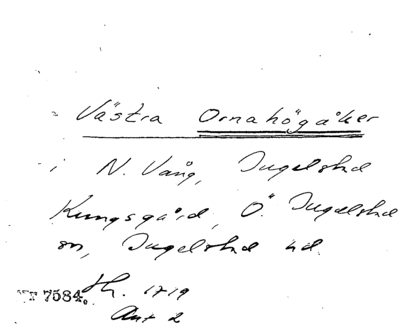 Västra Ornahögåker
i N. Vång, Ingelstad
Kungsgård, Ö. Ingelstad
sn, Ingelstad hd.
Sh. 1719
7584.
Akt 2